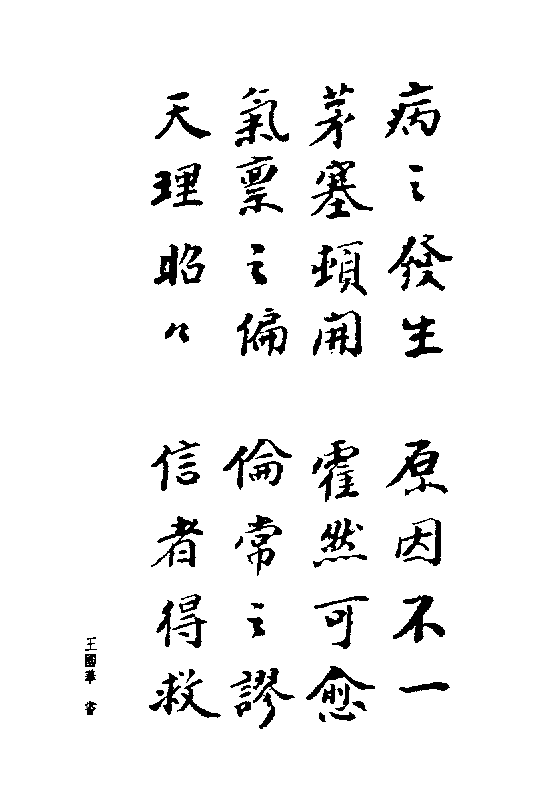 病之發生 原因不一
茅塞頓開 霍然可愈
氣禀之偏 倫常之謬
天理昭々 信者得救
王國華 書